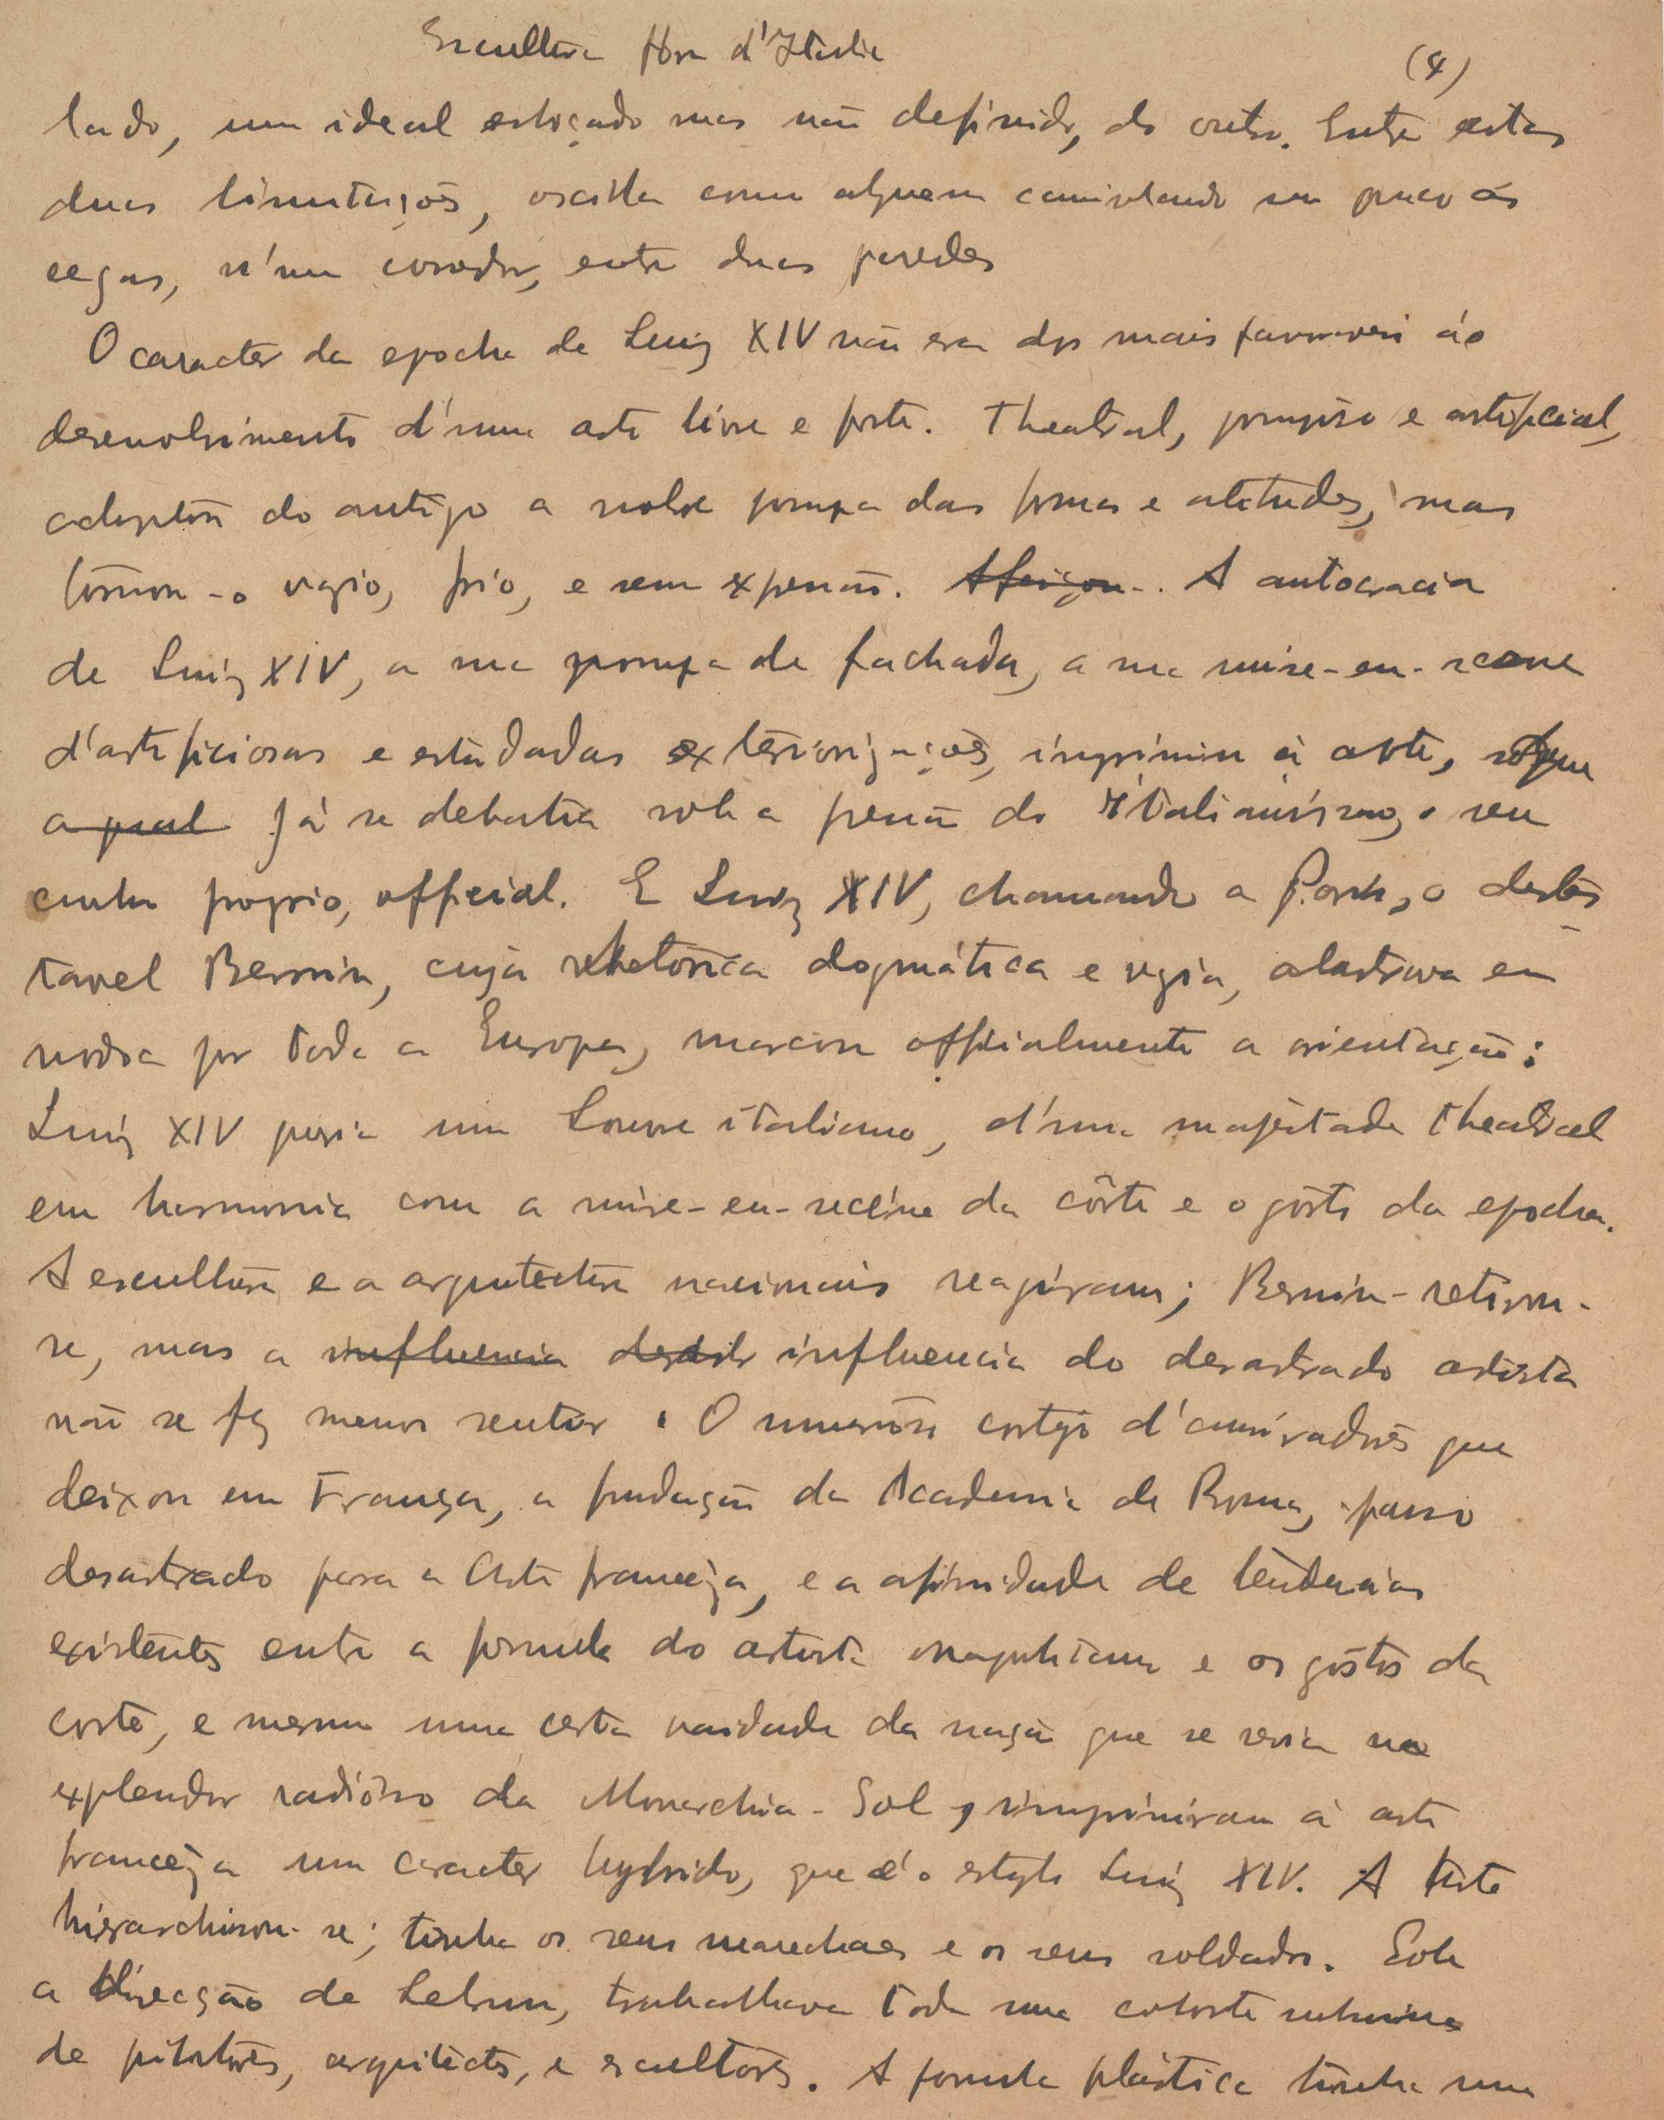 Escultura fora d'Italia
(4)
lado, um ideal esboçado mas não definido, do outro. Entre estas
duas limitações, oscilla como alguem caminhando um pouco ás
cegas, n'um corredor, entre duas paredes
O caracter da epocha de Luiz XIV não era dos mais favoraveis áo
desenvolvimento d'uma arte livre e forte. Theatral, pomposo e artificial,
adoptou do antigo a nobre pompa das formas e atitudes, mas
tornou-o vazio, frio, e sem expressão. Afeiçou.. A autocracia
de Luiz XIV, a sua pompa de fachada, a sua mise-en-scene
d'artificiosas e estudadas exteriorizações, imprimiu á arte, que
a qual já se debatia sob a pressão do Italianismo, o seu
cunho proprio, official. E Luiz XIV, chamando a Paris, o detes
tavel Bernin, cuja rhetorica dogmática e vazia, alastrava em
nodoa por toda a Europa, marcou officialmente a orientação:
Luiz XIV queria um Louvre italiano, d'uma majestade theatral
em harmonia com a mise-en-scéne da côrte e o gôsto da epocha.
A escultura e a arquitectura nacionais reagiram; Bernin retirou-
se, mas a influencia deste influencia do desastrado artista
não se fez menos sentir. O numeroso cortejo d'admiradores que
deixou em França, a fundação da Academia de Roma, passo
desastrado para a Arte franceza, e a afinidade de tendencias
existentes entre a formula do artista napolitano e os gostos da
corte, e mesmo uma certa vaidade da nação que se revia no
explendor radioso da Monarchia-Sol, imprimiram á arte
franceza um caracter hybrido, que é o estylo Luiz XIV. A Arte
hierarchisou-se; tinha os seus marechaes e os seus soldados. Sob
a direcção de Lebrun, trabalhava toda uma cohorte submissa
de pintores, arquitectos, e escultores. A formula plástica tinha uma